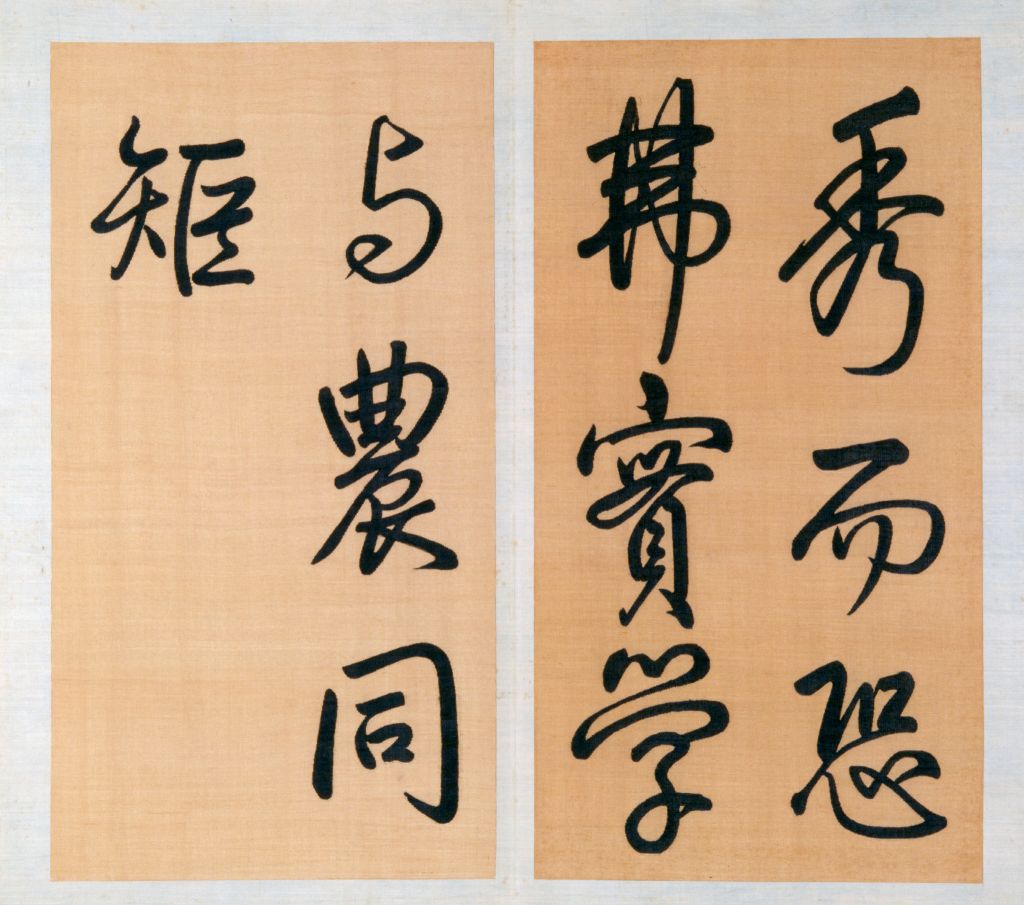 秀而恐
弗實学
与農同
矩